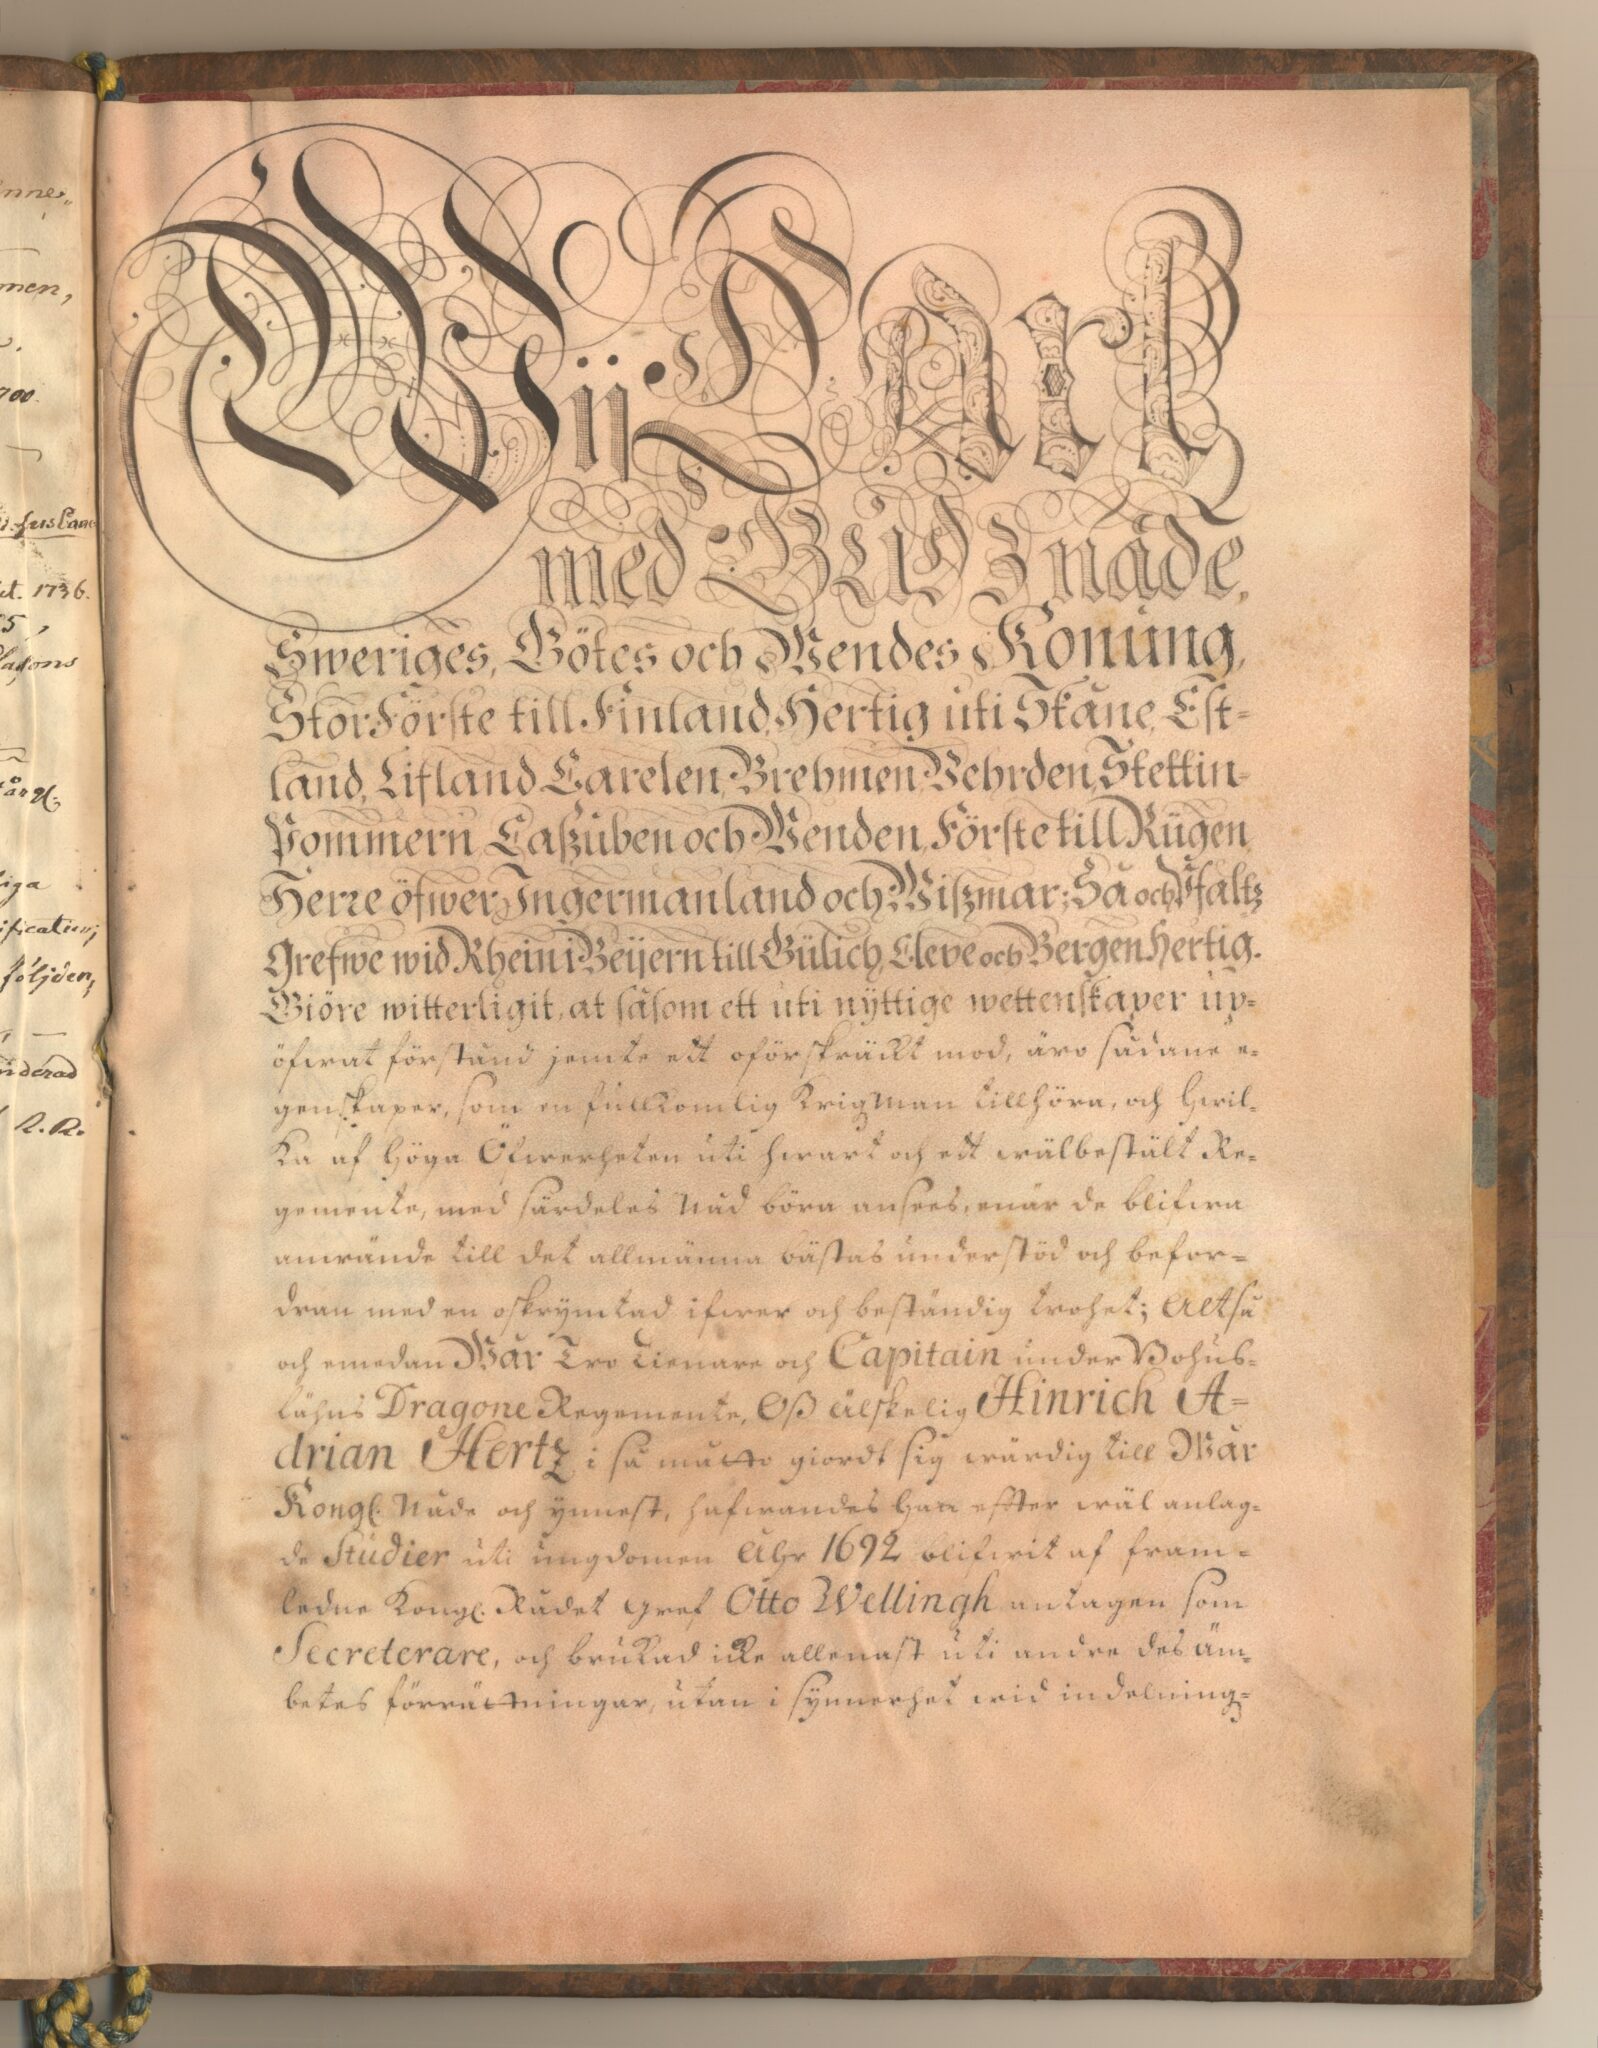 nne,,
men,
700.
et. 1736.
5,
ladons
iga
ification;
följden,
nderad
R. R.
Wij Carl
med Gudz nåde,
Sweriges, Götes och Wendes Konung,
StorFörste till Finland, Hertig uti Skåne, Est=
land, Lifland, Carelen, Brehmen, Vehrden, Stettin-
Pommern, Caßuben och Wenden, Förste till Rügen,
Herre öfwer Ingermanland och Wißmar; Så och Pfaltz
Grefwe wid Rhein i Beijern till Gülich, Cleve och Bergen Hertig.
Giöre witterligit, at såsom ett uti nyttige wettenskaper up=
öfwat förstånd jemte ett oförskräckt mod, äro sådane e=
genskaper, som en fullkomlig Krigzman tillhöra, och hwil=
ka af höga Öfwerheten uti hwart och ett wälbestält Re=
gemente, med särdeles Nåd böra ansees, enär de blifwa
anwände till det allmänna bästas understöd och befor=
dran med en oskrymtad ifwer och beständig trohet; Altså
och emedan Wår Tro Tienare och Capitain under Bohus=
Lähns Dragone Regemente, Oß älskelig Hinrich A=
drian Hertz i så måtto giordt sig wärdig till Wår
Kongl. Nåde och ynnest, hafwandes han effter wäl anlag=
de Studier uti ungdomen Ahr 1692 blifwit af fram=
ledne Kongl. Rådet Gref Otto Wellingh antagen som
Secreterare, och brukad icke allenast uti andre des äm=
betes förrättningar, utan i synnerhet wid indelning=